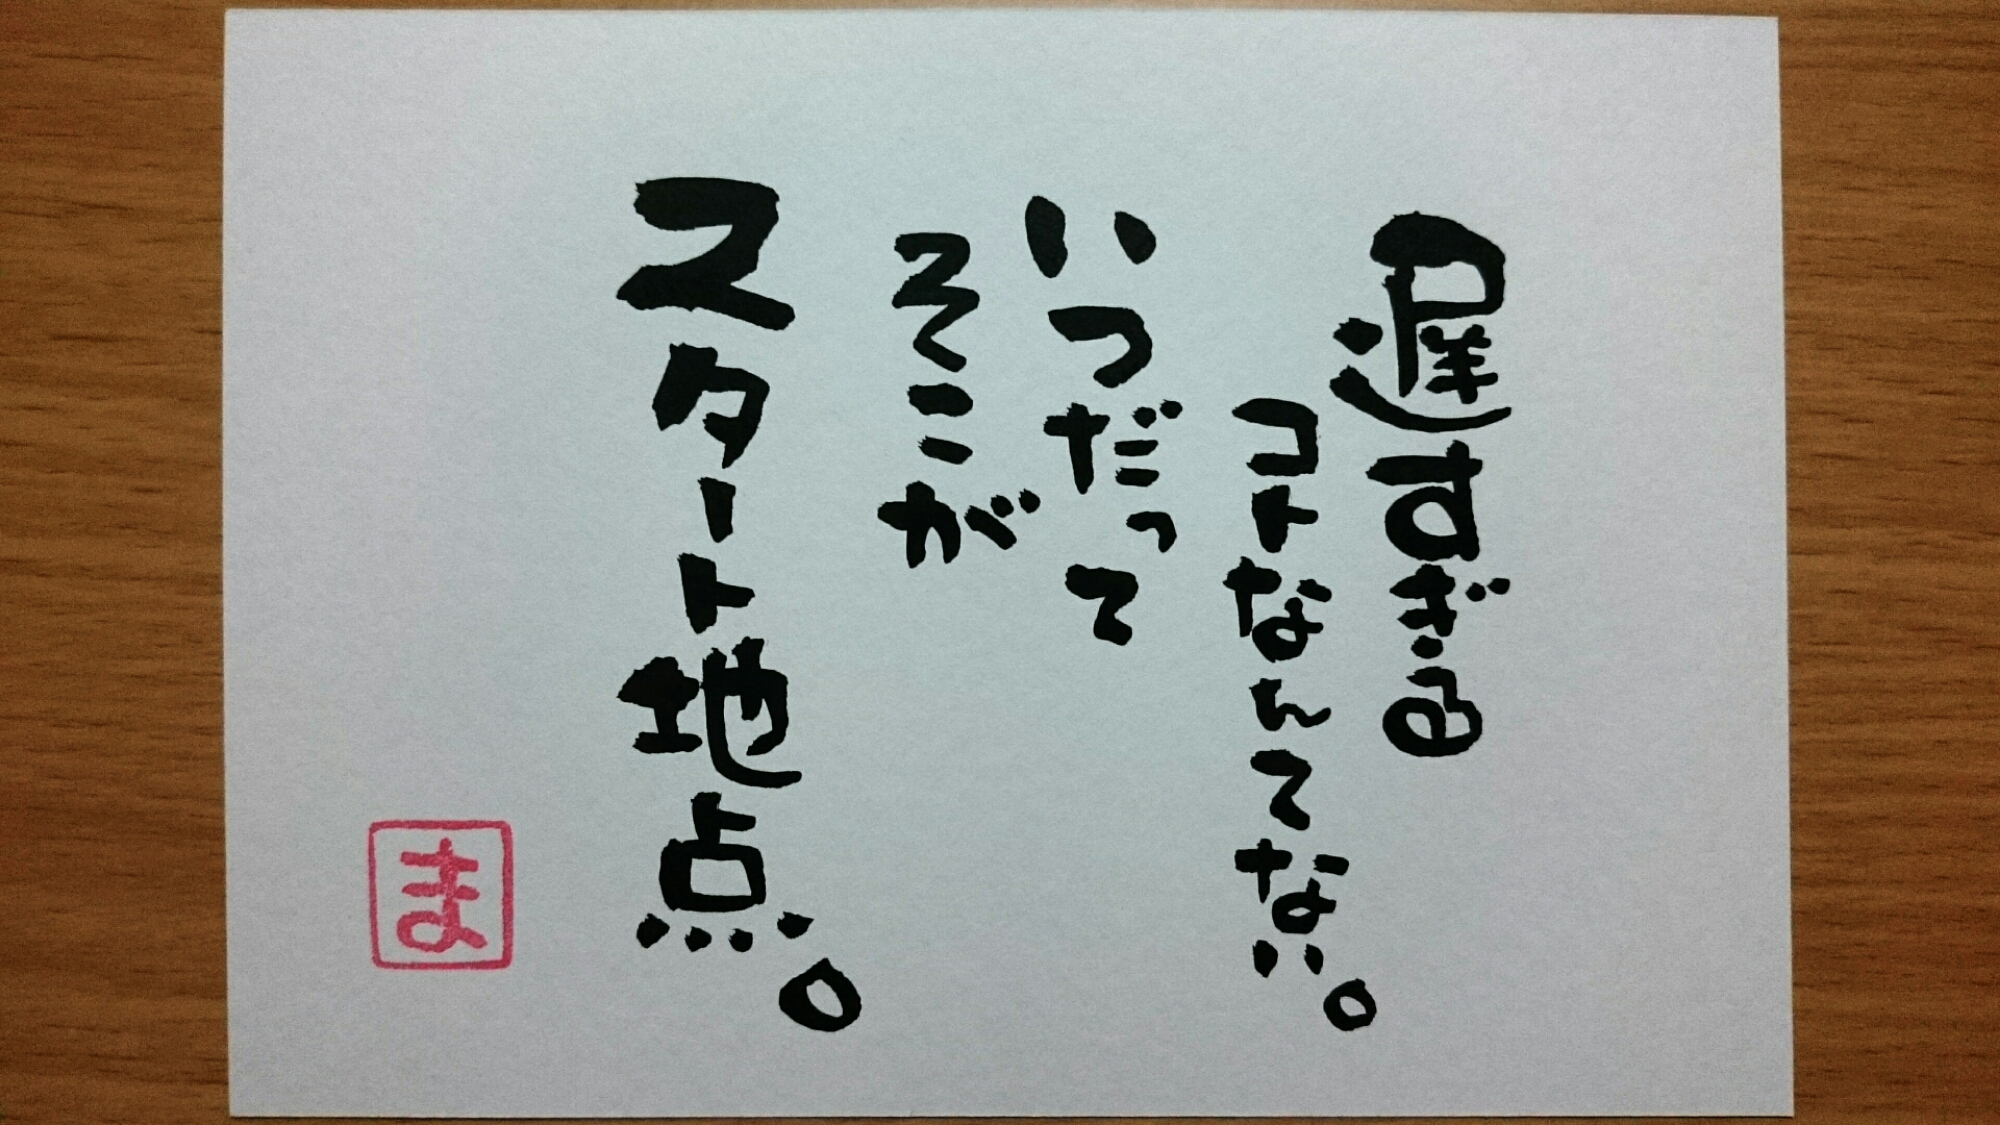 遅すぎる
コトなんてない。
いつだって
そこが
スタート地点。
ま